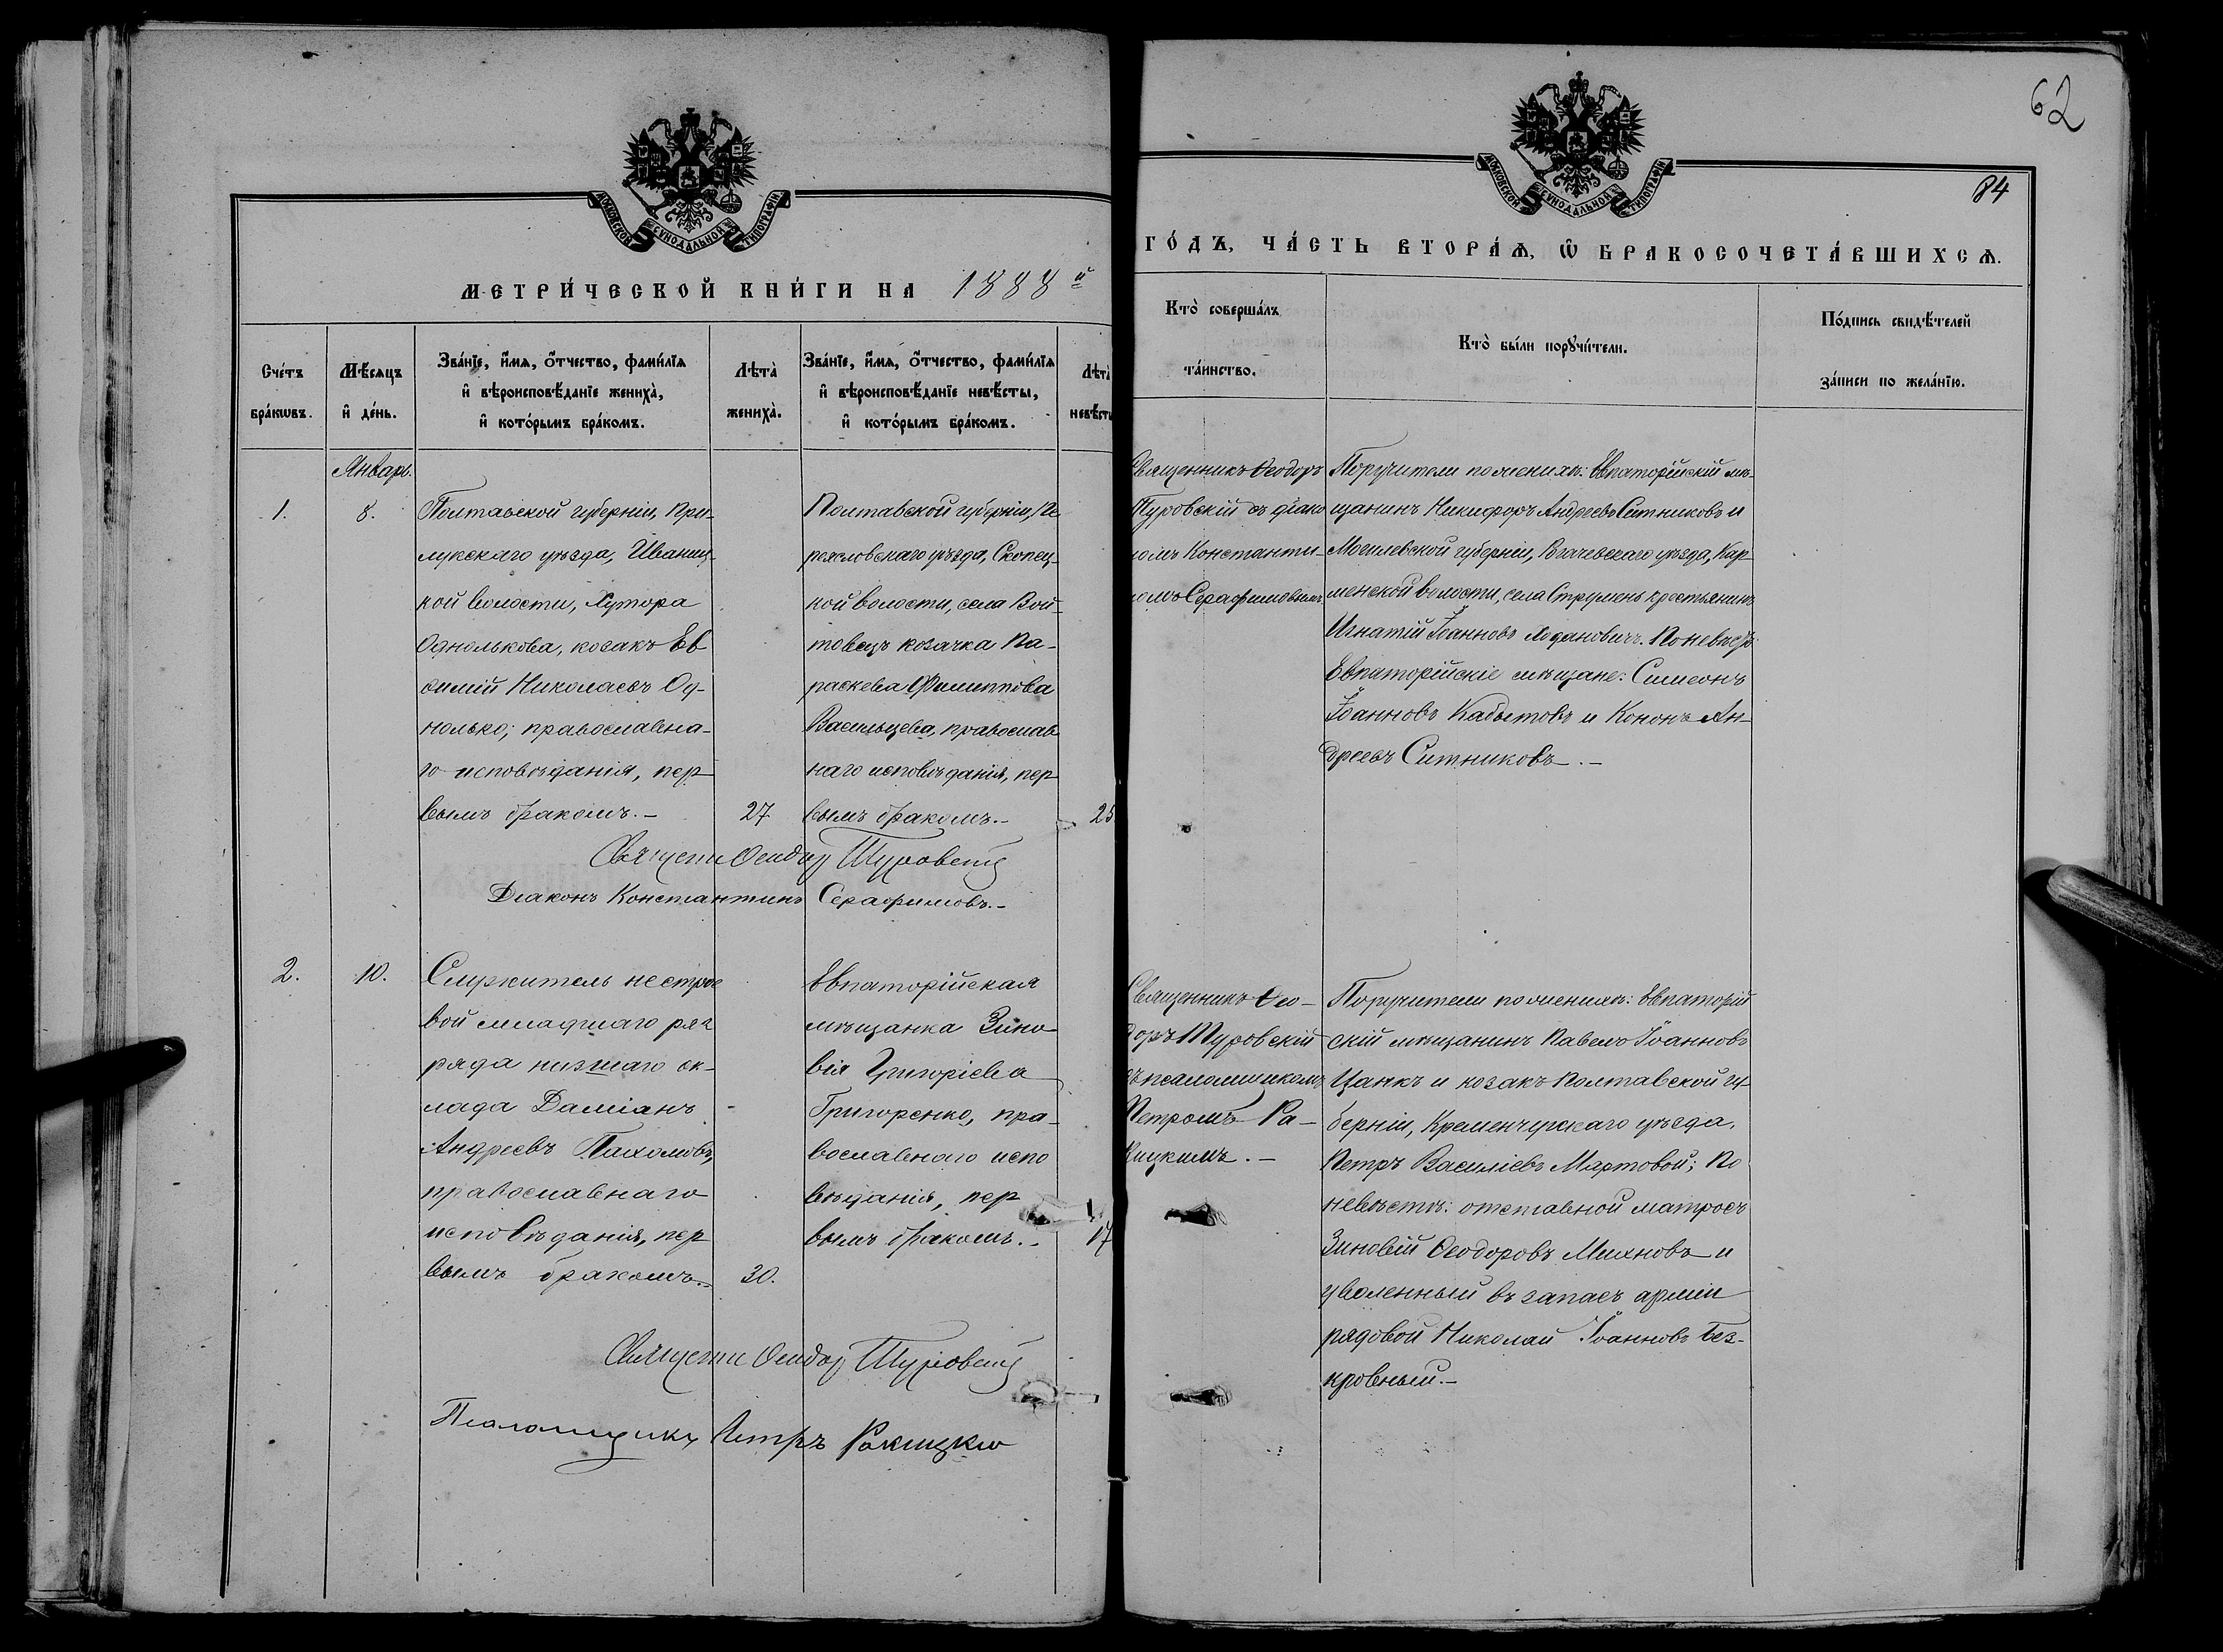 62
84
МОСКОВСКОЙ СѴНОДАЛЬНОЙ ТИПОГРАФІИ
МОСКОВСКОЙ СѴНОДАЛЬНОЙ ТИПОГРАФІИ
МЕТРИ́ЧЕСКОЙ КНИ́ГИ НА 1888й
ГО́ДЪ, ЧА́СТЬ ВТОРА́Ѧ, Ѽ БРАКОСОЧЕТА́ВШИХСѦ.
Сче́тъ
бра́кѡвъ.
Мѣ́сяцъ
и҆ де́нь.
Зва́нїе, и҆́мѧ, ѻ҆́тчество, фами́лїѧ
и҆ вѣроисповѣ́данїе жениха̀,
и҆ кото́рымъ бра́комъ.
Лѣта̀
жениха̀.
Зва́нїе, и҆́мѧ, ѻ҆́тчество, фами́лїѧ
и҆ вѣроисповѣ́данїе невѣ́сты,
и҆ кото́рымъ бра́комъ.
Лѣта̀
невѣ́сты
Кто̀ соверша́лъ
та́инство.
Кто̀ бы́ли порꙋчи́тели.
По́дпись свидѣ́телей
за́писи по жела́нїю.
Январь.
1.
8.
Полтавской губерніи, При-
лукскаго уѣзда, Иваниц-
кой волости, Хутора
Однолькова, козакъ Ев
ѳимій Николаевъ Од-
нолько; православна-
го исповѣданія, пер
вымъ бракомъ.-
27
Полтавской губерніи, Пе
реяславскаго уѣзда, Скопец-
кой волости, села Вой-
товецъ козачка Па-
раскева Филиппова
православ
наго исповѣданія, пер
вымъ бракомъ.-
25
Священникъ Ѳеодоръ
Туровскій съ діако
номъ Константи-
номъ Серафимовымъ
Поручители по женихѣ: Евпаторійскій мѣ-
щанинъ Никифоръ Андреевъ Ситниковъ и
Могилевской губерніи, уѣзда, Кор-
менской волости, села Струмень крестьянинъ
Игнатій Іоанновъ Ходановичъ. По невѣстѣ
Евпаторійскіе мѣщане: Симеонъ
Іоанновъ Кабытовъ и Кононъ Ан-
дреевъ Ситниковъ.-
Священн Ѳеодор Туровскій
Діаконъ Константинъ Серафимовъ.-
2.
10.
Служитель нестрое
вой младшаго раз
ряда низшаго ок-
лада Даміанъ
Андреевъ Пахомовъ,
православнаго
исповѣданія, пер
вымъ бракомъ.-
30.
Евпаторійская
мѣщанка Зино
вія Григоріева
Григоренко, пра-
вославнаго испо
вѣданія, пер
вымъ бракомъ.-
17
Священникъ Ѳео-
доръ Туровскій
съ псаломщикомъ
Петромъ Ра-
кицкимъ.-
Поручители по женихѣ: Евпаторій
скій мѣщанинъ Павелъ Іоанновъ
Цанкъ и козакъ Полтавской гу
берніи, Кременчугскаго уѣзда,
Петръ Василіевъ Мартовой; По
невѣстѣ: отставной матросъ
Зиновій Ѳеодоровъ Михновъ и
уволенный въ запасъ арміи
рядовой Николай Іоанновъ Без-
кровный.-
Священн Ѳеодор Туровскій
Псаломщикъ Петръ Ракицкій